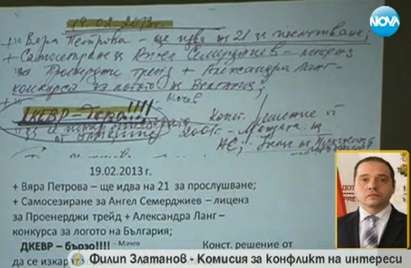 NOVA
19.02.2013г.
+ Вяра Петрова – ще идва на 21 за прослушване;
+ Самосезиране за Ангел Семерджиев – лиценз
за Проенерджи трейд + Александра Ланг –
конкурса за логото на България;
Мачев
ДКЕВР – бързо!!!!
Конст. решение от
19.02.2013
+ Вяра Петрова – ще идва на 21 за прослушване;
+ Самосезиране за Ангел Семерджиев – лиценз
за Проенерджи трейд + Александра Ланг –
конкурса за логото на България;
ДКЕВР – бързо!!!! – Мачев Конст. решение от
да се изкара
Филип Златанов - Комисия за конфликт на интереси